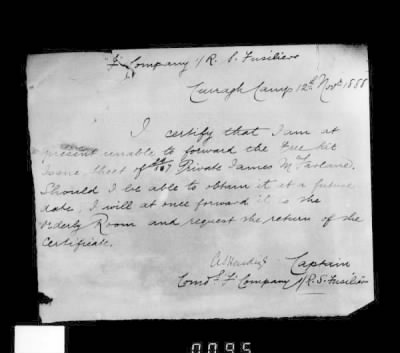 F Company 1/R. S. Fusiliers
Curragh Camp 12th Novr 1888
I certify that I am at
present unable to forward the Free kit
issue sheet of Private James McFarlane.
Should I be able to obtain it at a future
date, I will at once forward it to the
Orderly Room and request the return of the
Certificate.
Captain
Comdg F Company 1/R. S. Fusiliers
0095